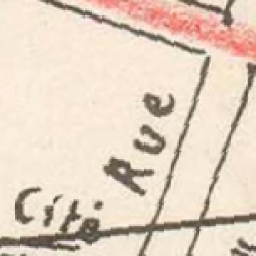 Rue
Cité